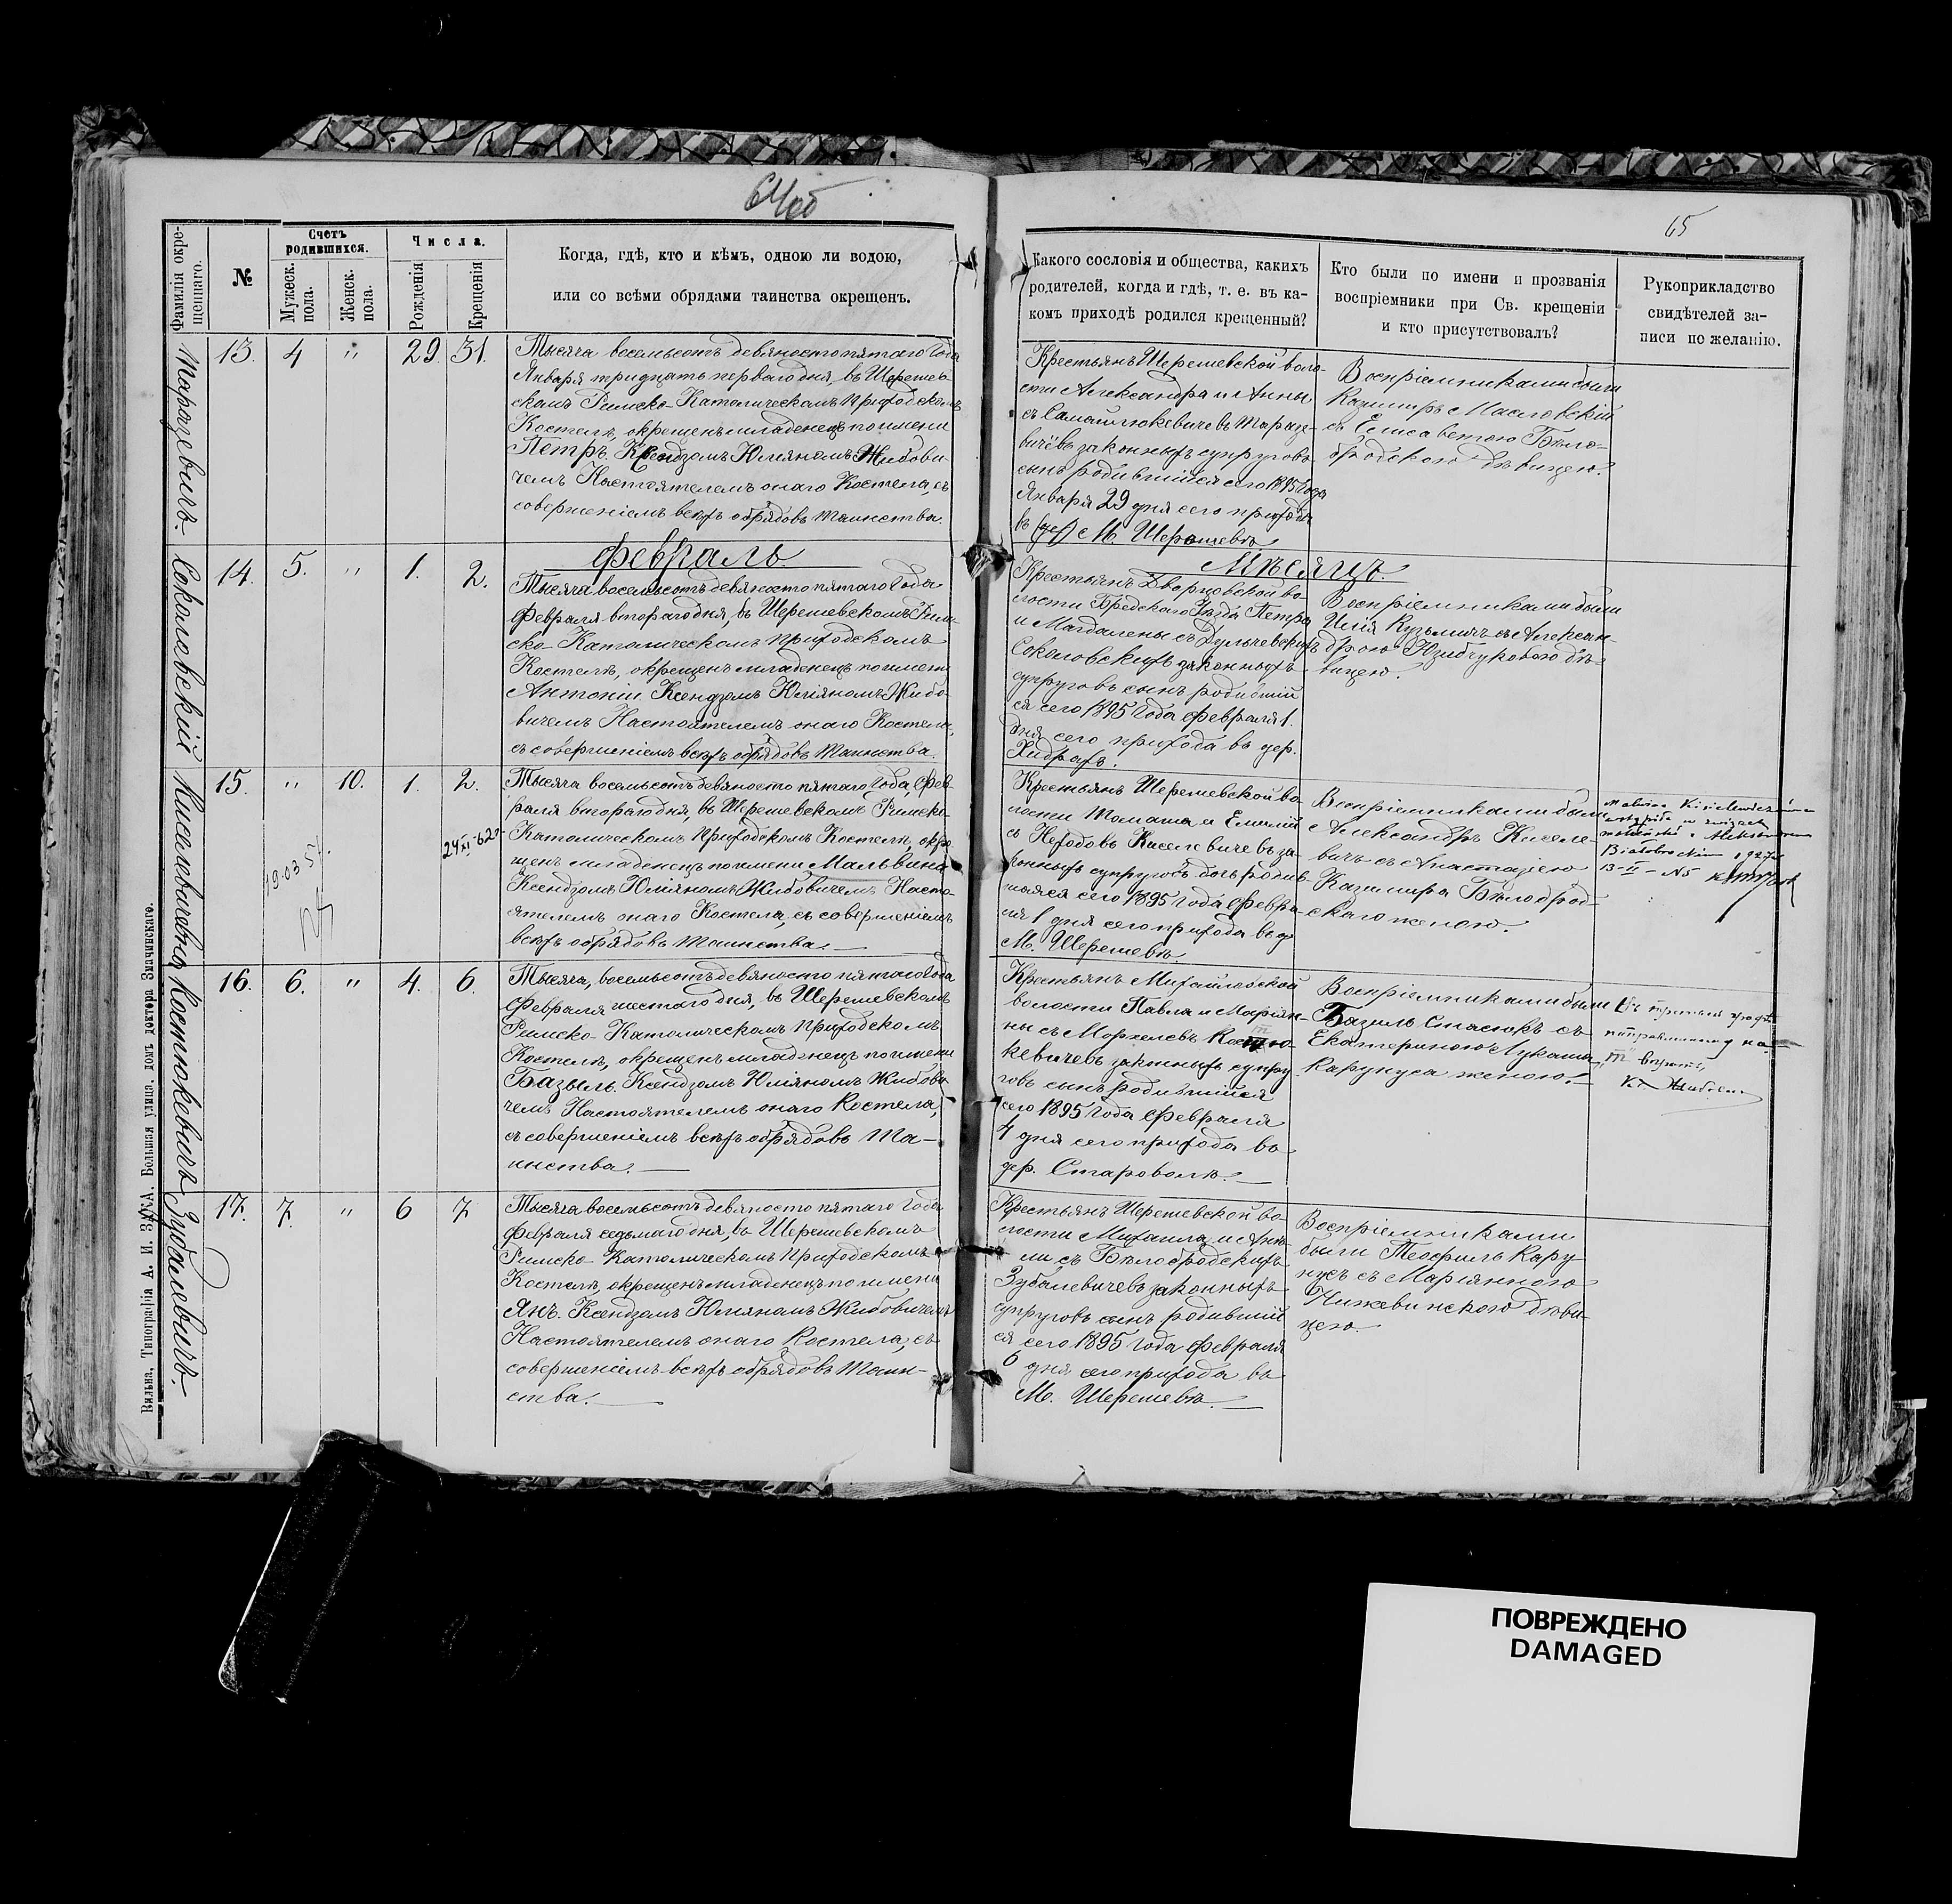 64об
65
Фамилія окрещеннаго.
№
Счетъ родившихся.
Мужеск. пола.
Женск. пола.
Числа.
Рожденія
Крещенія
Когда, гдѣ, кто и кѣмъ, одною ли водою,
или со всѣми обрядами таинства окрещенъ.
Какого сословія и общества, какихъ
родителей, когда и гдѣ, т. е. въ ка-
комъ приходѣ родился крещенный?
Кто были по имени и прозванія
воспріемники при Св. крещеніи
и кто присутствовалъ?
Рукоприкладство
свидѣтелей за-
писи по желанію.
Тарацевичъ.
13. 4 " 29. 31.
Тысяча восемьсотъ девяностопятаго Года
Января тридцать перваго дня, въ Шерешев-
скомъ Римско-Католическомъ Приходскомъ
Костелѣ, окрещенъ младенецъ по имени
Петръ. Ксендзомъ Юліяномъ Жибови-
чемъ Настоятелемъ онаго Костела, съ
совершеніемъ всѣхъ обрядовъ Таинства.
Крестьянъ Шерешевской воло-
сти Александра и Анны
съ Самайлюкевичевъ Тараце-
вичевъ законныхъ супруговъ
сынъ родившійся сего 1895 Года
Января 29 дня сего прихода
въ М. Шерешевѣ
Воспріемниками были
Казимиръ Масловскій
съ Елисаветою Бѣло-
бродскою дѣвицею.
Февраль
Мѣсяцъ.
Соколовскій
14. 5. " 1. 2.
Тысяча восемьсотъ девяносто пятаго Года
Февраля втораго дня, въ Шерешевскомъ Рим-
ско-Католическомъ Приходскомъ
Костелѣ, окрещенъ младенецъ по имени
Антоніи Ксендзомъ Юліяномъ Жибо-
вичемъ Настоятелемъ онаго Костела,
съ совершеніемъ всѣхъ обрядовъ Таинства.
Крестьянъ Дворцовской во-
лости Уѣзда Петра
и Магдалены съ Дульчевскихъ
Соколовскихъ законныхъ
супруговъ сынъ родившій
ся сего 1895 Года Февраля 1.
дня сего прихода въ дер.
Хидрахъ.
Воспріемниками были
Илія Кузьмичъ съ Алексан-
дрою дѣ-
вицею.
Киселевичовна
15. " 10. 1. 2.
19.03.57.
Тысяча восемьсотъ девяносто пятаго Года, Фев-
раля втораго дня, въ Шерешевскомъ Римско-
Католическомъ Приходскомъ Костелѣ, окре-
щенъ младенецъ по имени Мальвина
Ксендзомъ Юліяномъ Жибовичемъ Насто-
ятелемъ онаго Костела, съ совершеніемъ
всѣхъ обрядовъ Таинства.
Крестьянъ Шерешевской во-
лости Томаша и Емилій
съ Киселевичевъ за-
конныхъ супруговъ дочь родив-
шаяся сего 1895 Года Февра-
ля 1 дня сего прихода въ
М. Шерешевѣ.
Воспріемниками были
Александръ Киселе-
вичъ съ Анастасіею
Казимира Бѣлоброд-
скаго женою.
Malwina Kisielewiczówna
wstąpiła w związek
małżeński z Aleksandrem
1927 r
13-II-
Костюкевичъ
16. 6. " 4. 6.
Тысяча, восемьсотъ девяносто пятаго Года
Февраля шестаго дня, въ Шерешевскомъ
Римско-Католическомъ Приходскомъ
Костелѣ, окрещенъ младенецъ по имени
Базыль. Ксендзомъ Юліяномъ Жибови
чемъ Настоятелемъ онаго Костела,
съ совершеніемъ всѣхъ обрядовъ Та-
инства.
Крестьянъ Михайловской
волости Павла и Маріян-
ны съ Костю-
кевичевъ законныхъ супру-
говъ сынъ родившійся
сего 1895 Года Февраля
4 дня сего прихода въ
дер. Староволѣ.
Воспріемниками были
Базыль Стасюкъ съ
Екатериною Лукаша
Карупуса женою.
Зубалевичъ.
17. 7. " 6 7
Тысяча восемьсотъ девяносто пятаго Года
Февраля седьмаго дня, въ Шерешевскомъ
Римско-Католическомъ Приходскомъ
Костелѣ, окрещенъ младенецъ по имени
Янъ. Ксендзомъ Юліяномъ Жибовичемъ
Настоятелемъ онаго Костела, съ
совершеніемъ всѣхъ обрядовъ Таин-
ства.
Крестьянъ Шерешевской во-
лости Михаила и Ан-
ны съ Бѣлобродскихъ
Зубалевичевъ законныхъ
супруговъ сынъ родившій
ся сего 1895 Года Февраля
6 дня сего прихода въ
М. Шерешевѣ.
Воспріемниками
были Теофиль Кару
пусъ съ Маріянною
Чижевинскою дѣви-
цею.
Вильна. Типографія А. И. ЗАКА. Большая улица. домъ доктора Значинскаго.
ПОВРЕЖДЕНО
DAMAGED